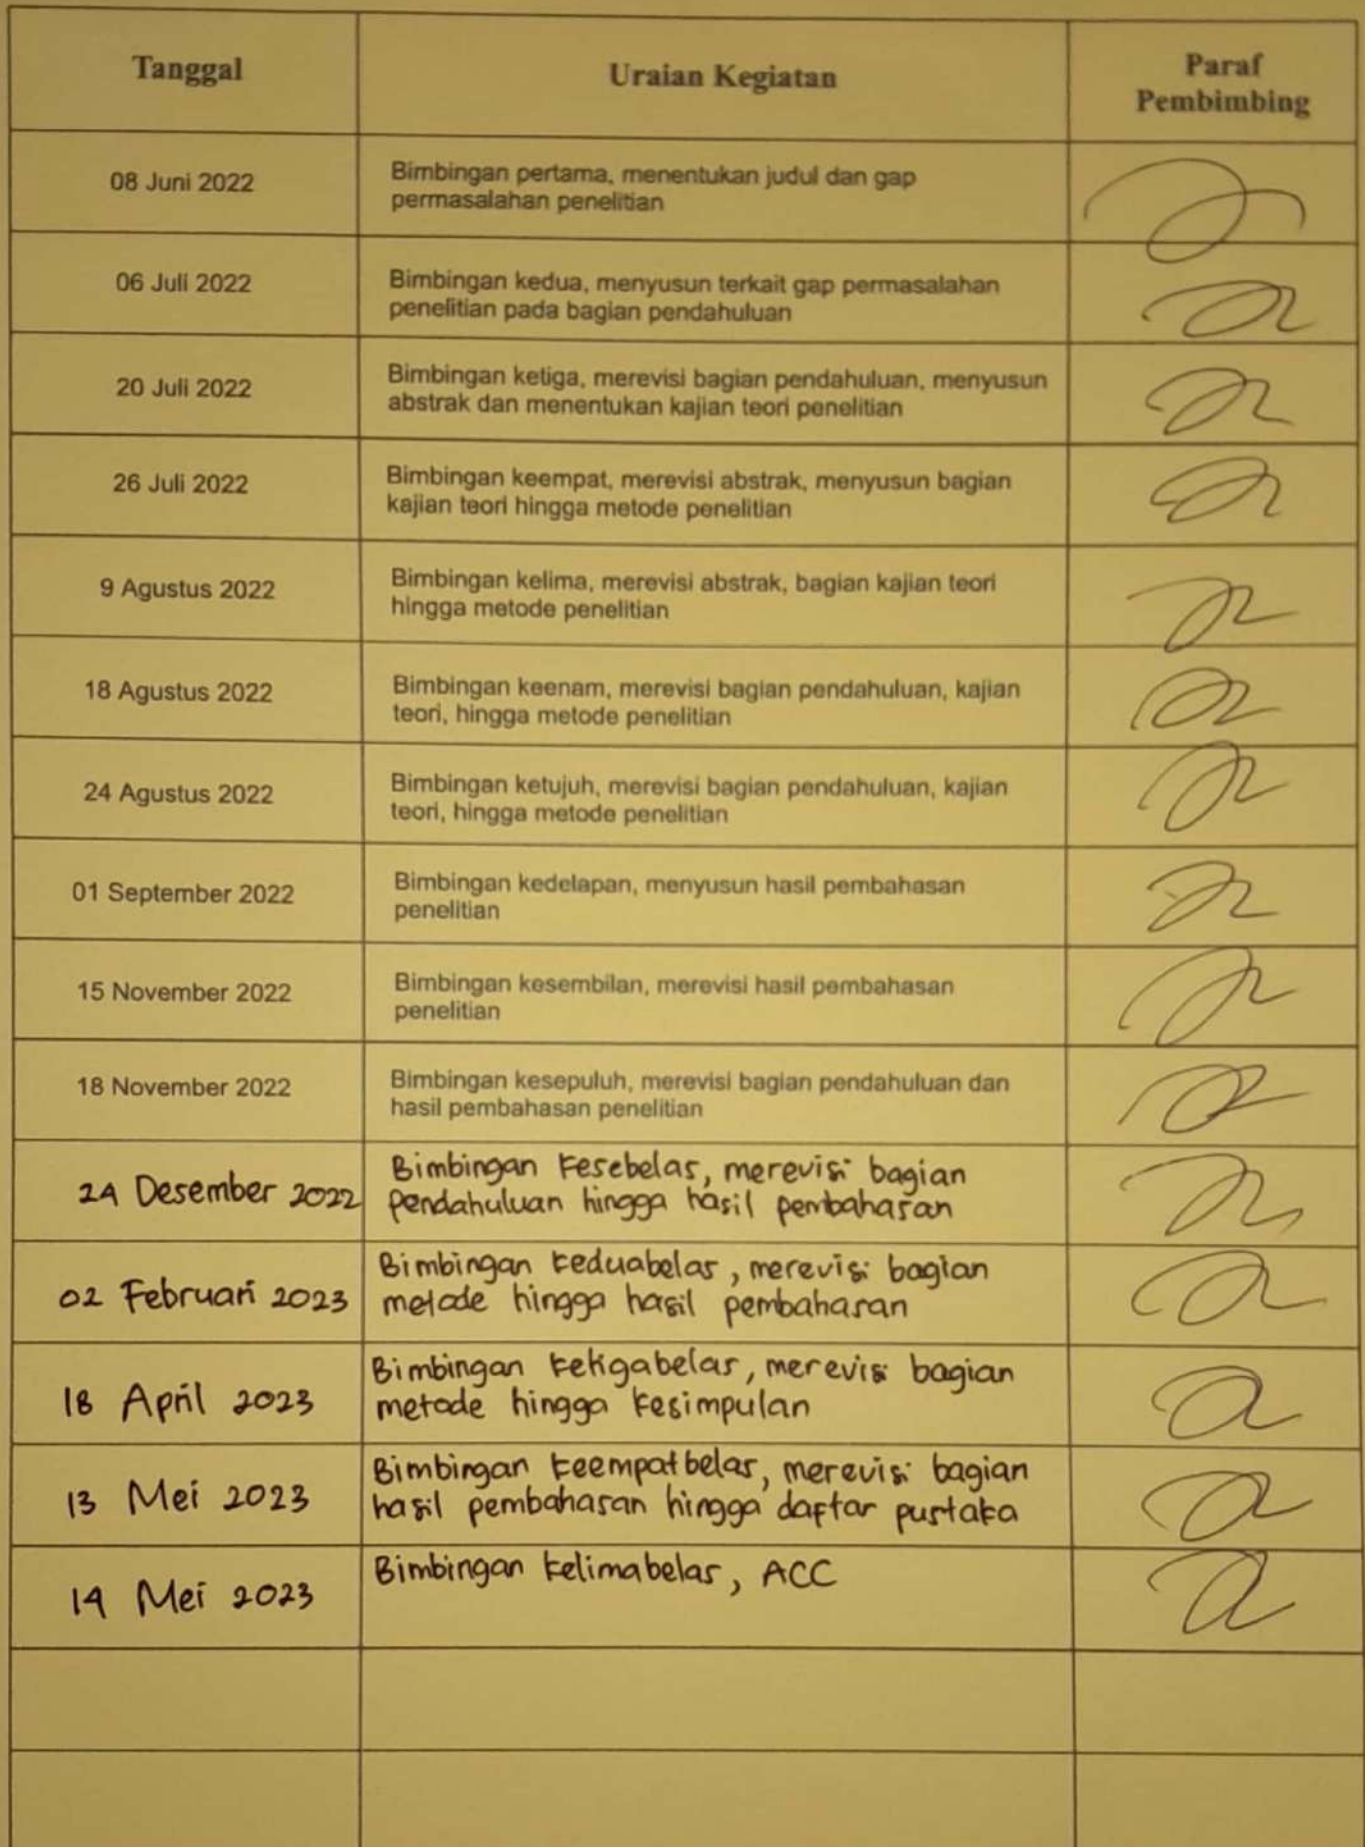 Tanggal
Uraian Kegiatan
Paraf
Pembimbing
08 Juni 2022
Bimbingan pertama, menentukan judul dan gap
permasalahan penelitian
06 Juli 2022
Bimbingan kedua, menyusun terkait gap permasalahan
penelitian pada bagian pendahuluan
20 Juli 2022
Bimbingan ketiga, merevisi bagian pendahuluan, menyusun
abstrak dan menentukan kajian teori penelitian
26 Juli 2022
Bimbingan keempat, merevisi abstrak, menyusun bagian
kajian teori hingga metode penelitian
9 Agustus 2022
Bimbingan kelima, merevisi abstrak, bagian kajian teori
hingga metode penelitian
18 Agustus 2022
Bimbingan keenam, merevisi bagian pendahuluan, kajian
teori, hingga metode penelitian
24 Agustus 2022
Bimbingan ketujuh, merevisi bagian pendahuluan, kajian
teori, hingga metode penelitian
01 September 2022
Bimbingan kedelapan, menyusun hasil pembahasan
penelitian
15 November 2022
Bimbingan kesembilan, merevisi hasil pembahasan
penelitian
18 November 2022
Bimbingan kesepuluh, merevisi bagian pendahuluan dan
hasil pembahasan penelitian
24 Desember 2022
Bimbingan kesebelas, merevisi bagian
pendahuluan hingga hasil pembahasan
02 Februari 2023
Bimbingan keduabelas, merevisi bagian
metode hingga hasil pembahasan
18 April 2023
Bimbingan ketigabelas, merevisi bagian
metode hingga kesimpulan
13 Mei 2023
Bimbingan keempatbelas, merevisi bagian
hasil pembahasan hingga daftar pustaka
14 Mei 2023
Bimbingan kelimabelas, ACC